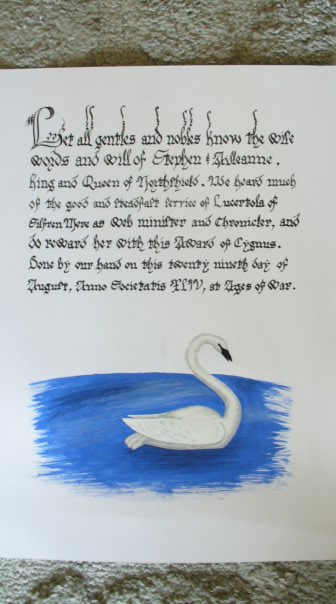 Let all gentles and nobles know the wise
words and will of Stephen & Ailleanne,
King and Queen of Northshield. We heard much
of the good and steadfast service of Lucertola of
Silfren Mere as web minister and Chronicler, and
do reward her with this Award of Cygnus.
Done by our hand on this twenty nineth day of
August, Anno Societatis XLIV, at Ages of War.